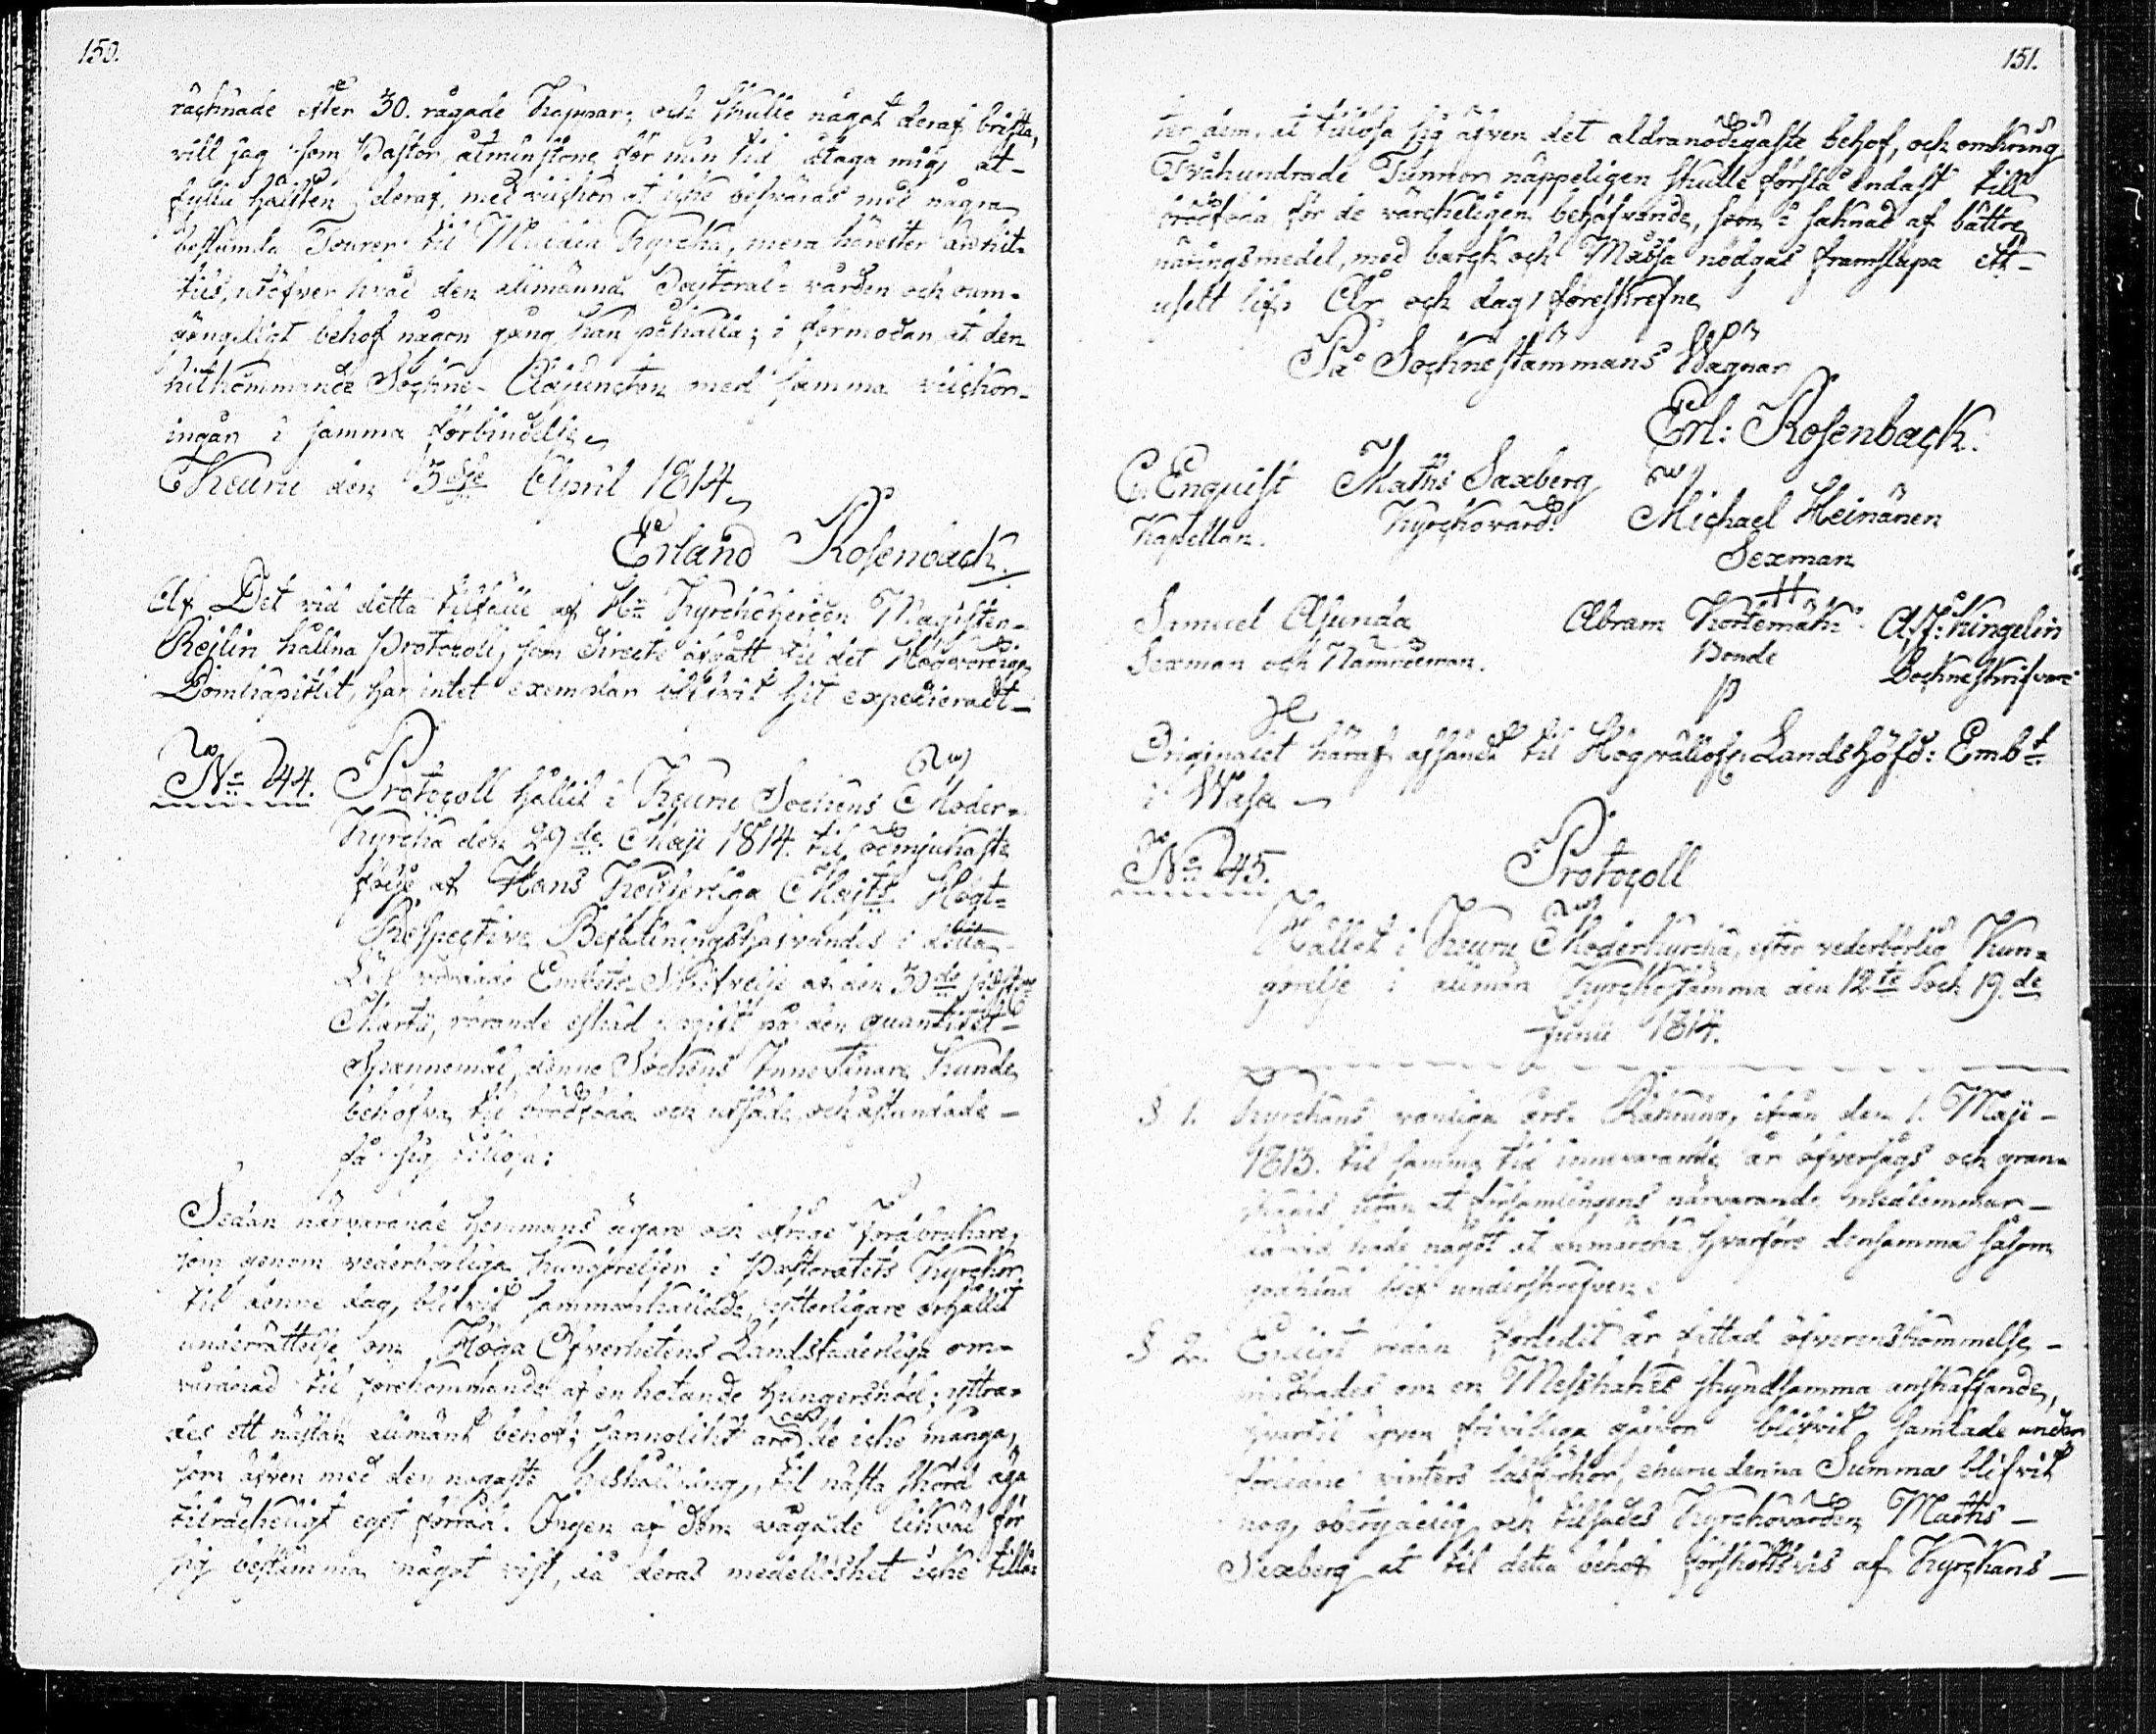 150.
räcknade efter 30. rågade Kappar; och skulle något deraf brista,
vill jag som Pastor, åtminstone för min tid, åtaga mig, at
fylla hälften deraf, med vilckor at icke besväras med några
bestämda Tourer til Multia Kyrcka, mera härefter än hit-
tils, utöfver hvad den allmänna Pastoral-vården och oum-
gängeligt behof någon gång kan påkalla; i förmodan at den
hitkommande Sockne-Adjuncten med samma vilckor
ingår i samma förbindelse
Keuru den 3dje April 1814
Erland Rosenback.
Af Det vid detta tilfälle af Hr Kyrckoherden Magister
Rejlin hållna Protocoll, som directe afgått til det Högvördige
Domkapitlet, har intet exemplar blifvit hit expedieradt
No 244. Protocoll hållit i Keuru Sockens Moder-
Kyrcka den 29de Maji 1814. til ödmjukaste
följe af Hans Keijserliga Maijts Högt-
Respective Befallningshafvandes i detta
Län vördade Embets Skrifvelse af den 30de sistl.
Martii, rörande äskad upgift på den quantitet
Spannemål, denne Sockens Innevånare kunde
behöfva til brödföda och utsäde och åstundade
få sig tillösa:
Sedan närvarande Hemmans ägare och öfrige Jordbrukare,
som genom vederbörliga kungörelser i Pastoratets Kyrckor
til denne dag, blifvit sammankallade, ytterligare erhållit
underrättelse om Höga Öfverhetens Landsfaderliga om-
vårdnad til förekommande af en hotande hungersnöd; yttra-
des ett nästan allmänt behof; sannolikt äro ock de icke många,
som äfven med den nogaste hushållning, til nästa skörd äga
tilräckeligt eget förråd. Ingen af dem vågade likväl för
sig bestämma något vist, då deras medellöshet icke tillå-
151.
ter dem, at tillösa sig äfven det aldranödigaste behof, och omkring
Tvåhundrade Tunnor näppeligen skulle förslå endast till
brödföda för de värckeligen behöfvande, som i saknad af bättre
näringsmedel, med barck och Måssa nödgas framsläpa ett
uselt lif. År och dag föreskrefne
På Sockne stämmans Vägnar
Erl: Rosenback.
C. Enquist Maths Saxberg
Kapellan. Kyrckovärd. Michael Heinänen
Sexman
Samuel Asunda Abram Kortemäki Ad: Kingelin
Sexman och Nämndeman. Bonde Sockneskrifvare
Originalet häraf afsändt til Högvällofl. Landshöfd: Embt
i Wasa
No 245. Protocoll
Hållet i Keuru Moderkyrcka, efter vederbörlig Kun-
görelse i allmän Kyrckostämma den 12te och 19.de
Junii 1814.
§ 1. Kyrckans vanliga års Räkning, ifrån den 1. Maji
1813. til samma tid innevarande år öfversågs och gran-
skades utan at församlingens närvarande medlemmar
därvid hade något at anmärcka hvarföre densamma såsom
godkänd blef underskrefven.
§ 2. Enligt redan förledit år fattad öfverenskommelse
om en Messhakes skyndsamma anskaffande,
hvartil äfven frivilliga gåfvor blifvit samlade under
förledne vinters läseförhör, ehuru denna Summa blifvit
nog obetydelig och tilsades Kyrckovärden Maths
Saxberg at til detta behof förskottsvis af Kyrckans